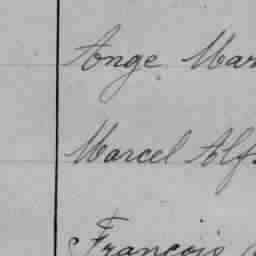 Ange Mar
Marcel Alf
François